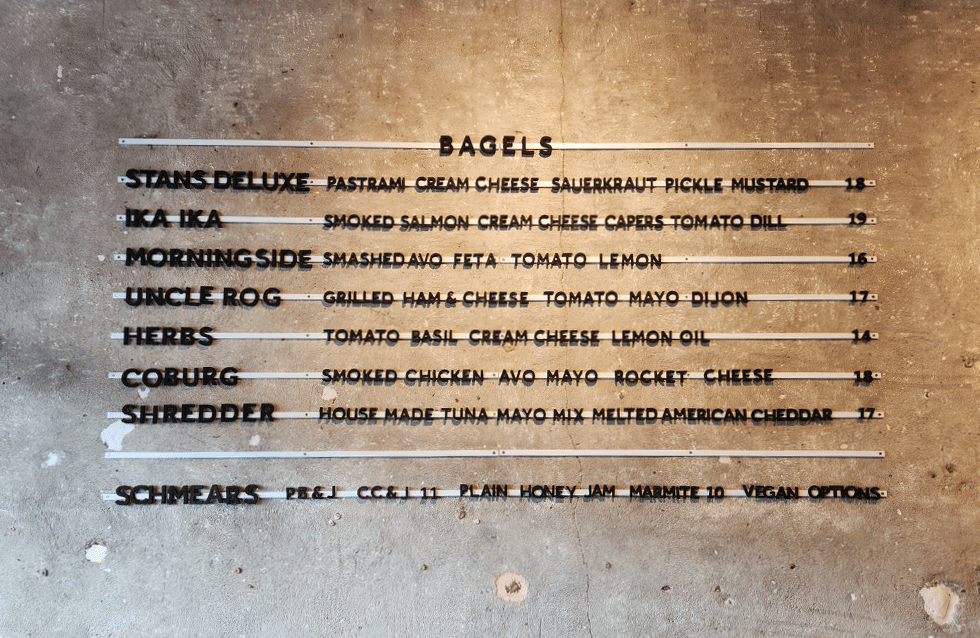 BAGELS
STANS DELUXE PASTRAMI CREAM CHEESE SAUERKRAUT PICKLE MUSTARD 18
IKA IKA SMOKED SALMON CREAM CHEESE CAPERS TOMATO DILL 19
MORNINGSIDE SMASHED AVO FETA TOMATO LEMON 16
UNCLE ROG GRILLED HAM & CHEESE TOMATO MAYO DIJON 17
HERBS TOMATO BASIL CREAM CHEESE LEMON OIL 14
COBURG SMOKED CHICKEN AVO MAYO ROCKET CHEESE 18
SHREDDER HOUSE MADE TUNA MAYO MIX MELTED AMERICAN CHEDDAR 17
SCHMEARS PB & J CC & J 11 PLAIN HONEY JAM MARMITE 10 VEGAN OPTIONS